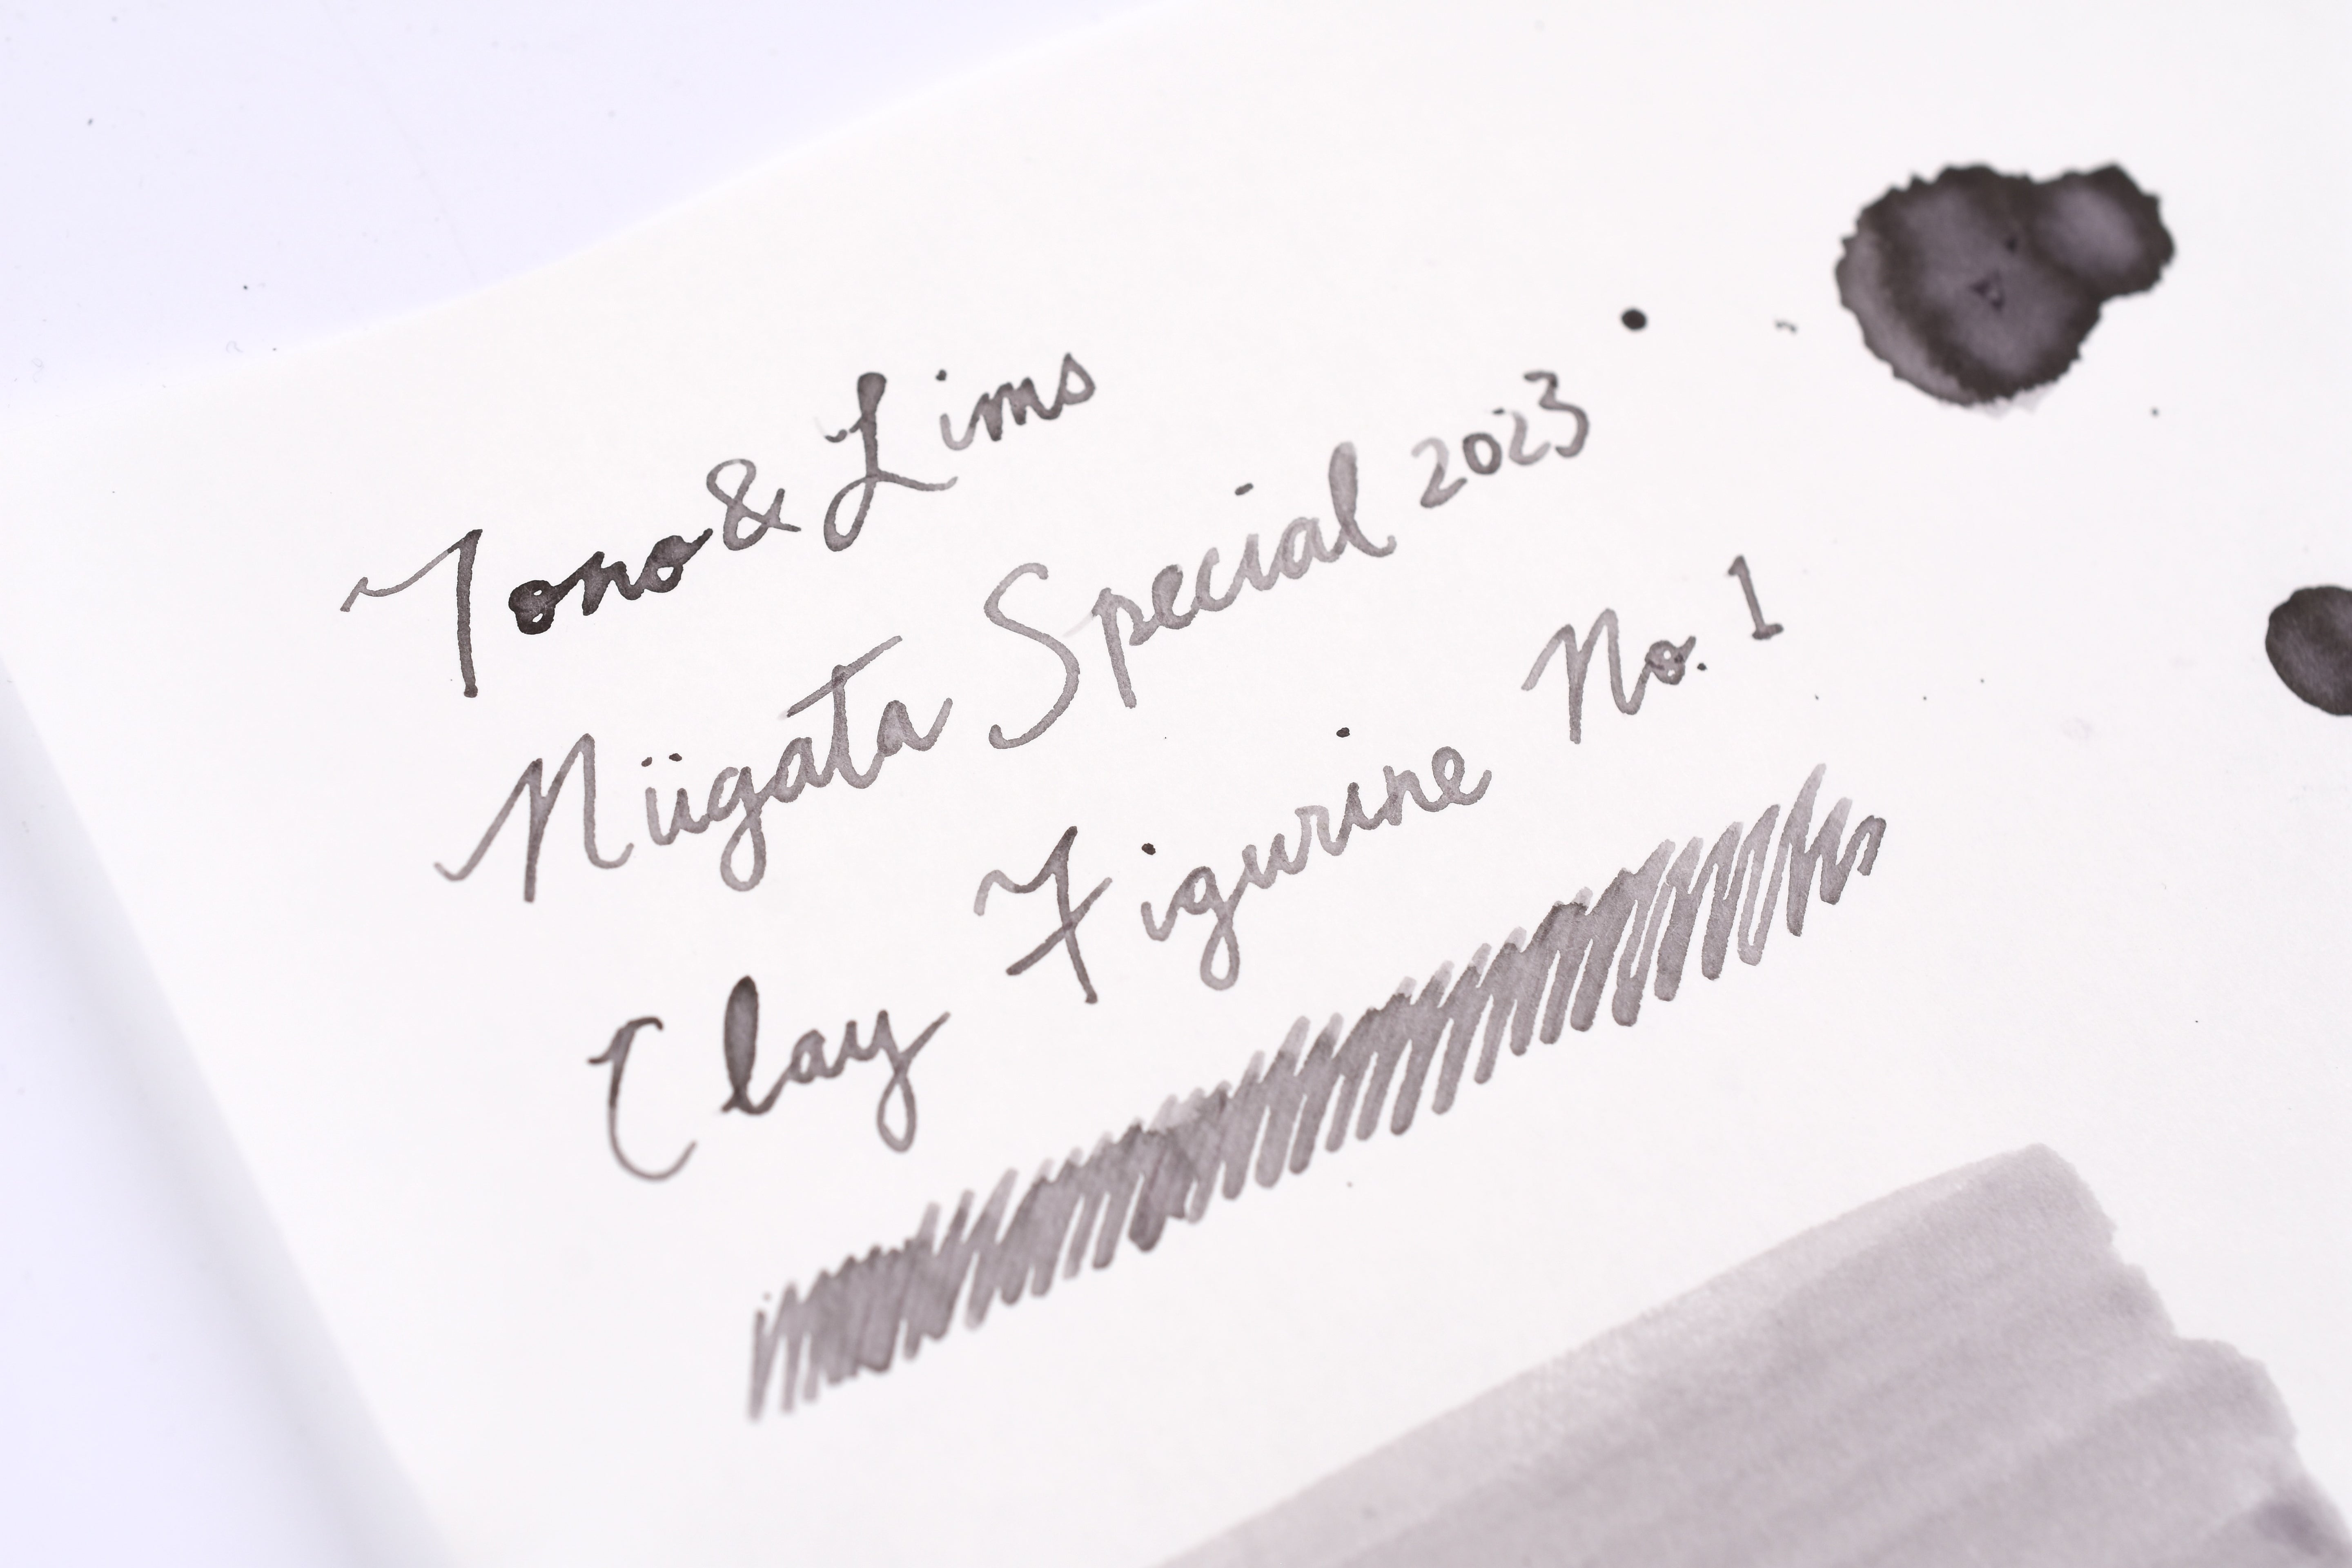 Tono & Lims
Niigata Special 2023
Clay Figurine No. 1